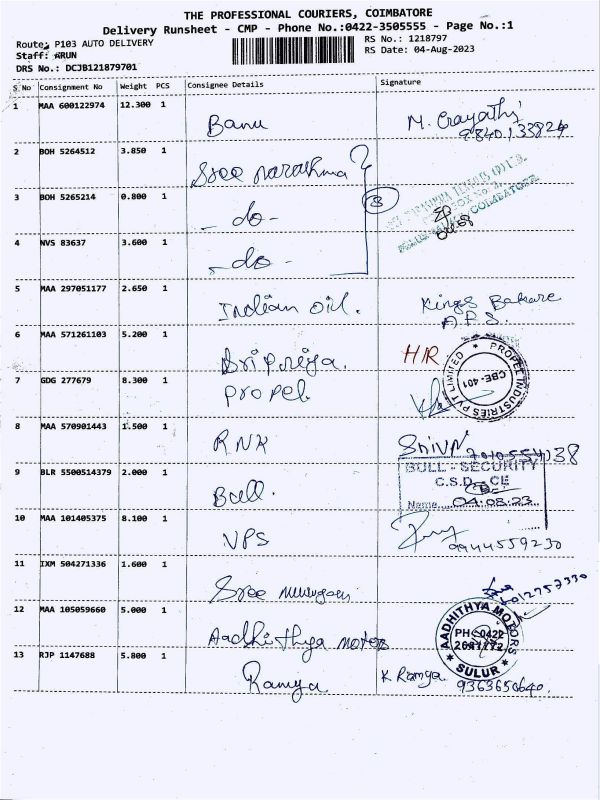 THE PROFESSIONAL COURIERS, COIMBATORE
Delivery Runsheet - CMP - Phone No.:0422-3505555 - Page No.:1
Route: P103 AUTO DELIVERY
RS No.: 1218797
Staff: ARUN
RS Date: 04-Aug-2023
DRS No.: DCJB121879701
S No Consignment No Weight PCS Consignee Details Signature
1 MAA 600122974 12.300 1 Banu
2 BOH 5264512 3.850 1 Sree
3 BOH 5265214 0.800 1 - do - 3
4 NVS 83637 3.600 1 - do -
5 MAA 297051177 2.650 1 Indian Oil. Kings
6 MAA 571261103 5.200 1 Sri Priya. H/R
PROPEL INDUSTRIES PVT LIMITED
CBE-401
7 GDG 277679 8.300 1 Propel
8 MAA 570901443 1.500 1 RNK
9 BLR 5500514379 2.000 1 Bull.
BULL - SECURITY
C.S.D
Name 04.08.23
10 MAA 101405375 8.100 1 VPS
9944559230
11 IXM 504271336 1.600 1 Sree murugan
12 MAA 105059660 5.000 1 Aadhithya motors
AADHITHYA MOTORS
PH: 0422
SULUR
13 RJP 1147688 5.800 1 Ramya K Ramya
9363650640.